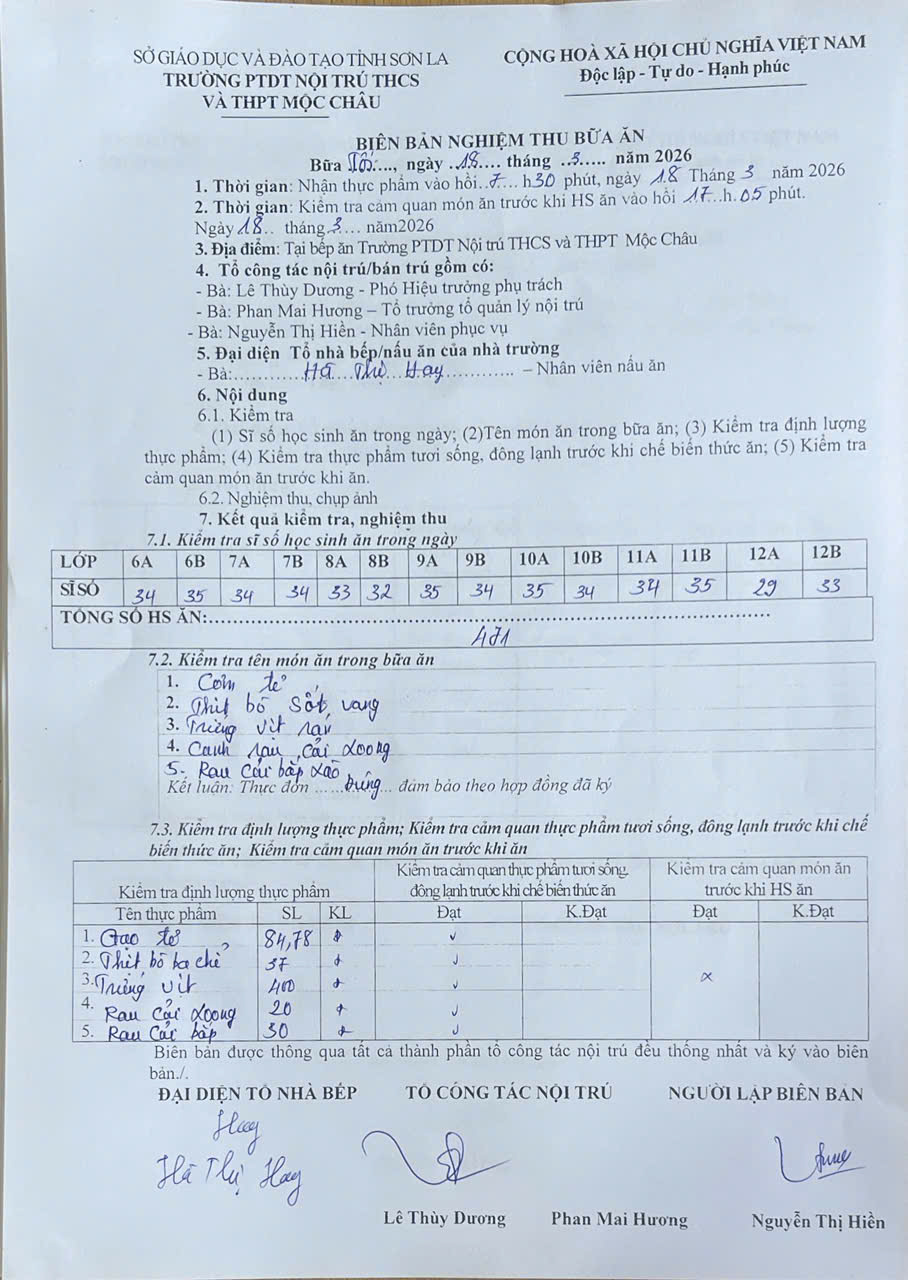 SỞ GIÁO DỤC VÀ ĐÀO TẠO TỈNH SƠN LA
TRƯỜNG PTDT NỘI TRÚ THCS
VÀ THPT MỘC CHÂU
CỘNG HOÀ XÃ HỘI CHỦ NGHĨA VIỆT NAM
Độc lập - Tự do - Hạnh phúc
BIÊN BẢN NGHIỆM THU BỮA ĂN
Bữa Tối...., ngày ..18.... tháng ..3..... năm 2026
1. Thời gian: Nhận thực phẩm vào hồi..7... h30 phút, ngày 18 Tháng 3 năm 2026
2. Thời gian: Kiểm tra cảm quan món ăn trước khi HS ăn vào hồi 17...h.05 phút.
Ngày 18.. tháng.3.... năm2026
3. Địa điểm: Tại bếp ăn Trường PTDT Nội trú THCS và THPT Mộc Châu
4. Tổ công tác nội trú/bán trú gồm có:
- Bà: Lê Thùy Dương - Phó Hiệu trưởng phụ trách
- Bà: Phan Mai Hương – Tổ trưởng tổ quản lý nội trú
- Bà: Nguyễn Thị Hiền - Nhân viên phục vụ
5. Đại diện Tổ nhà bếp/nấu ăn của nhà trường
- Bà:............Hà....Thị....Hay............. – Nhân viên nấu ăn
6. Nội dung
6.1. Kiểm tra
(1) Sĩ số học sinh ăn trong ngày; (2)Tên món ăn trong bữa ăn; (3) Kiểm tra định lượng
thực phẩm; (4) Kiểm tra thực phẩm tươi sống, đông lạnh trước khi chế biến thức ăn; (5) Kiểm tra
cảm quan món ăn trước khi ăn.
6.2. Nghiệm thu, chụp ảnh
7. Kết quả kiểm tra, nghiệm thu
7.1. Kiểm tra sĩ số học sinh ăn trong ngày
LỚP 6A 6B 7A 7B 8A 8B 9A 9B 10A 10B 11A 11B 12A 12B
SĨ SỐ 34 35 34 34 33 32 35 34 35 34 34 35 29 33
TỔNG SỐ HS ĂN:..........
471
7.2. Kiểm tra tên món ăn trong bữa ăn
1. Cơm tẻ
2. Thịt bò sốt vang
3. Trứng vịt rán
4. Canh rau cải xoong
5. Rau cải bắp xào
Kết luận: Thực đơn ......Đúng... đảm bảo theo hợp đồng đã ký
7.3. Kiểm tra định lượng thực phẩm; Kiểm tra cảm quan thực phẩm tươi sống, đông lạnh trước khi chế
biến thức ăn; Kiểm tra cảm quan món ăn trước khi ăn
Kiểm tra định lượng thực phẩm
Kiểm tra cảm quan thực phẩm tươi sống,
đông lạnh trước khi chế biến thức ăn
Kiểm tra cảm quan món ăn
trước khi HS ăn
Tên thực phẩm SL KL Đạt K.Đạt Đạt K.Đạt
1. Gạo tẻ 84,78 ✓
2. Thịt bò ba chỉ 37 ✓
3. Trứng vịt 400 ✓ x
4. Rau cải xoong 20 ✓
5. Rau cải bắp 30 ✓
Biên bản được thông qua tất cả thành phần tổ công tác nội trú đều thống nhất và ký vào biên
bản./.
ĐẠI DIỆN TỔ NHÀ BẾP TỔ CÔNG TÁC NỘI TRÚ NGƯỜI LẬP BIÊN BẢN
Hay
Hà Thị Hay
Lê Thùy Dương Phan Mai Hương Nguyễn Thị Hiền